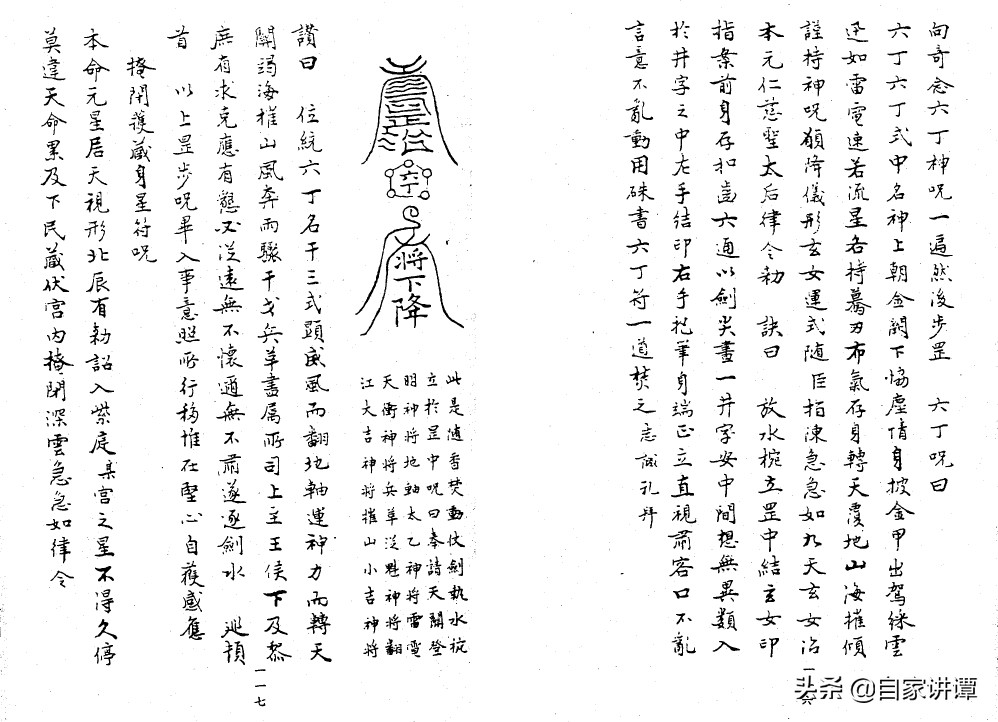 向奇念六丁神呪一遍然後步罡　六丁呪曰
六丁六丁式中名神上朝金闕下恊塵情身披金甲出駕綵雲
迅如雷電速若流星各持驀刃布氣存身轉天覆地山海摧傾
謹持神呪願降儀形玄女運式随臣指陳急急如九天玄女治
本元仁慈聖太后律令勅　訣曰　放水椀立罡中結玄女印
指案前身存扣齒六通以劍尖畫一井字安中間想無異類入
於井字之中左手結印右手把筆身端正立直視肅容口不亂
言意不亂動用硃書六丁符一道焚之志誠礼拜
一六
治
六丁
将下降
此是随香焚動仗劍執水椀
立於罡中呪曰奉請天關登
明神将地軸太乙神将雷電
天衝神将兵革從魁神将翻
江大吉神将摧山小吉神将
讃曰　位統六丁名干三式顕威風而翻地軸運神力而轉天
關渴海摧山風奔雨驟干戈兵革盡属所司上主王侯下及黎
庶有求克應有懇必從遠無不懷通無不肅遂逐劍水　巡頓
首　以上罡步呪畢入事意照所行移惟在堅心自獲感應
掩閉護藏身星符呪
本命元星居天視形北辰有勅詔入紫庭某宫之星不得久停
莫違天命累及下民藏伏宫内掩閉深雲急急如律令
一一七
头条 @自家讲谭